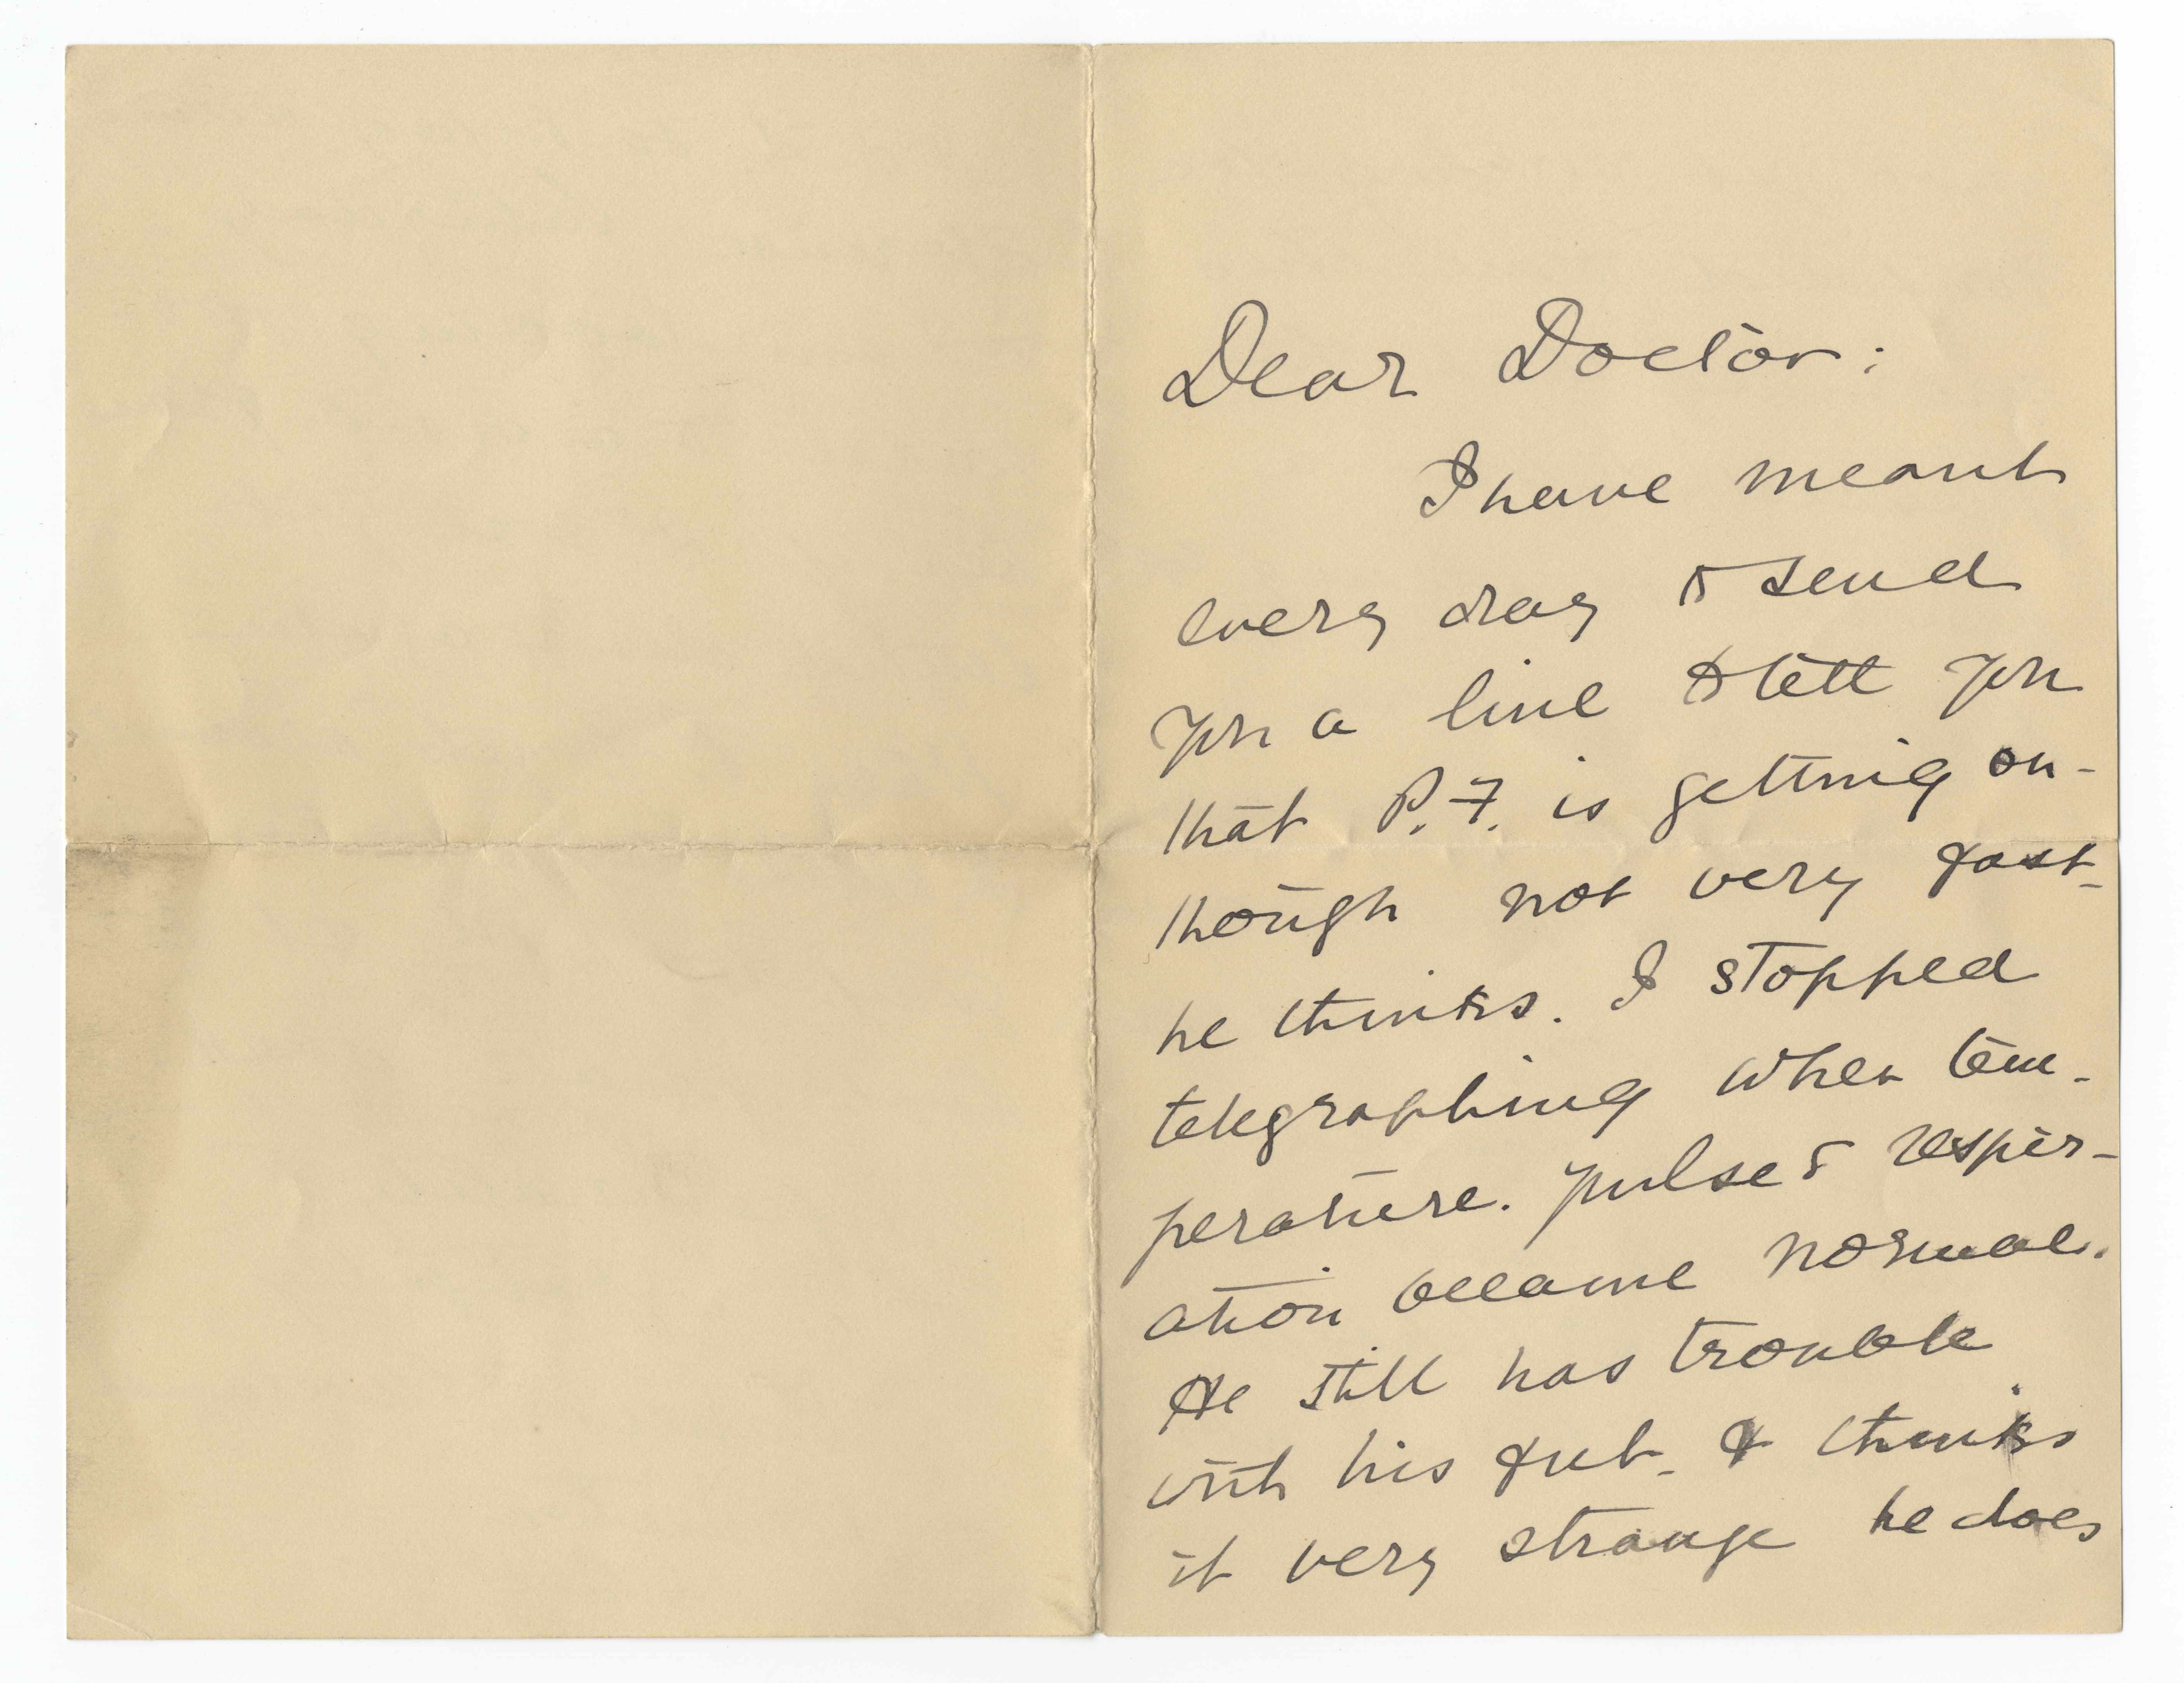 Dear Doctor:
I have meant
every day to send
you a line to tell you
that P.F. is getting on-
though not very fast-
he thinks. I stopped
telegraphing when tem-
perature. pulse & respir-
ation became normal.
He still has trouble
with his feet - & thinks
it very strange he does